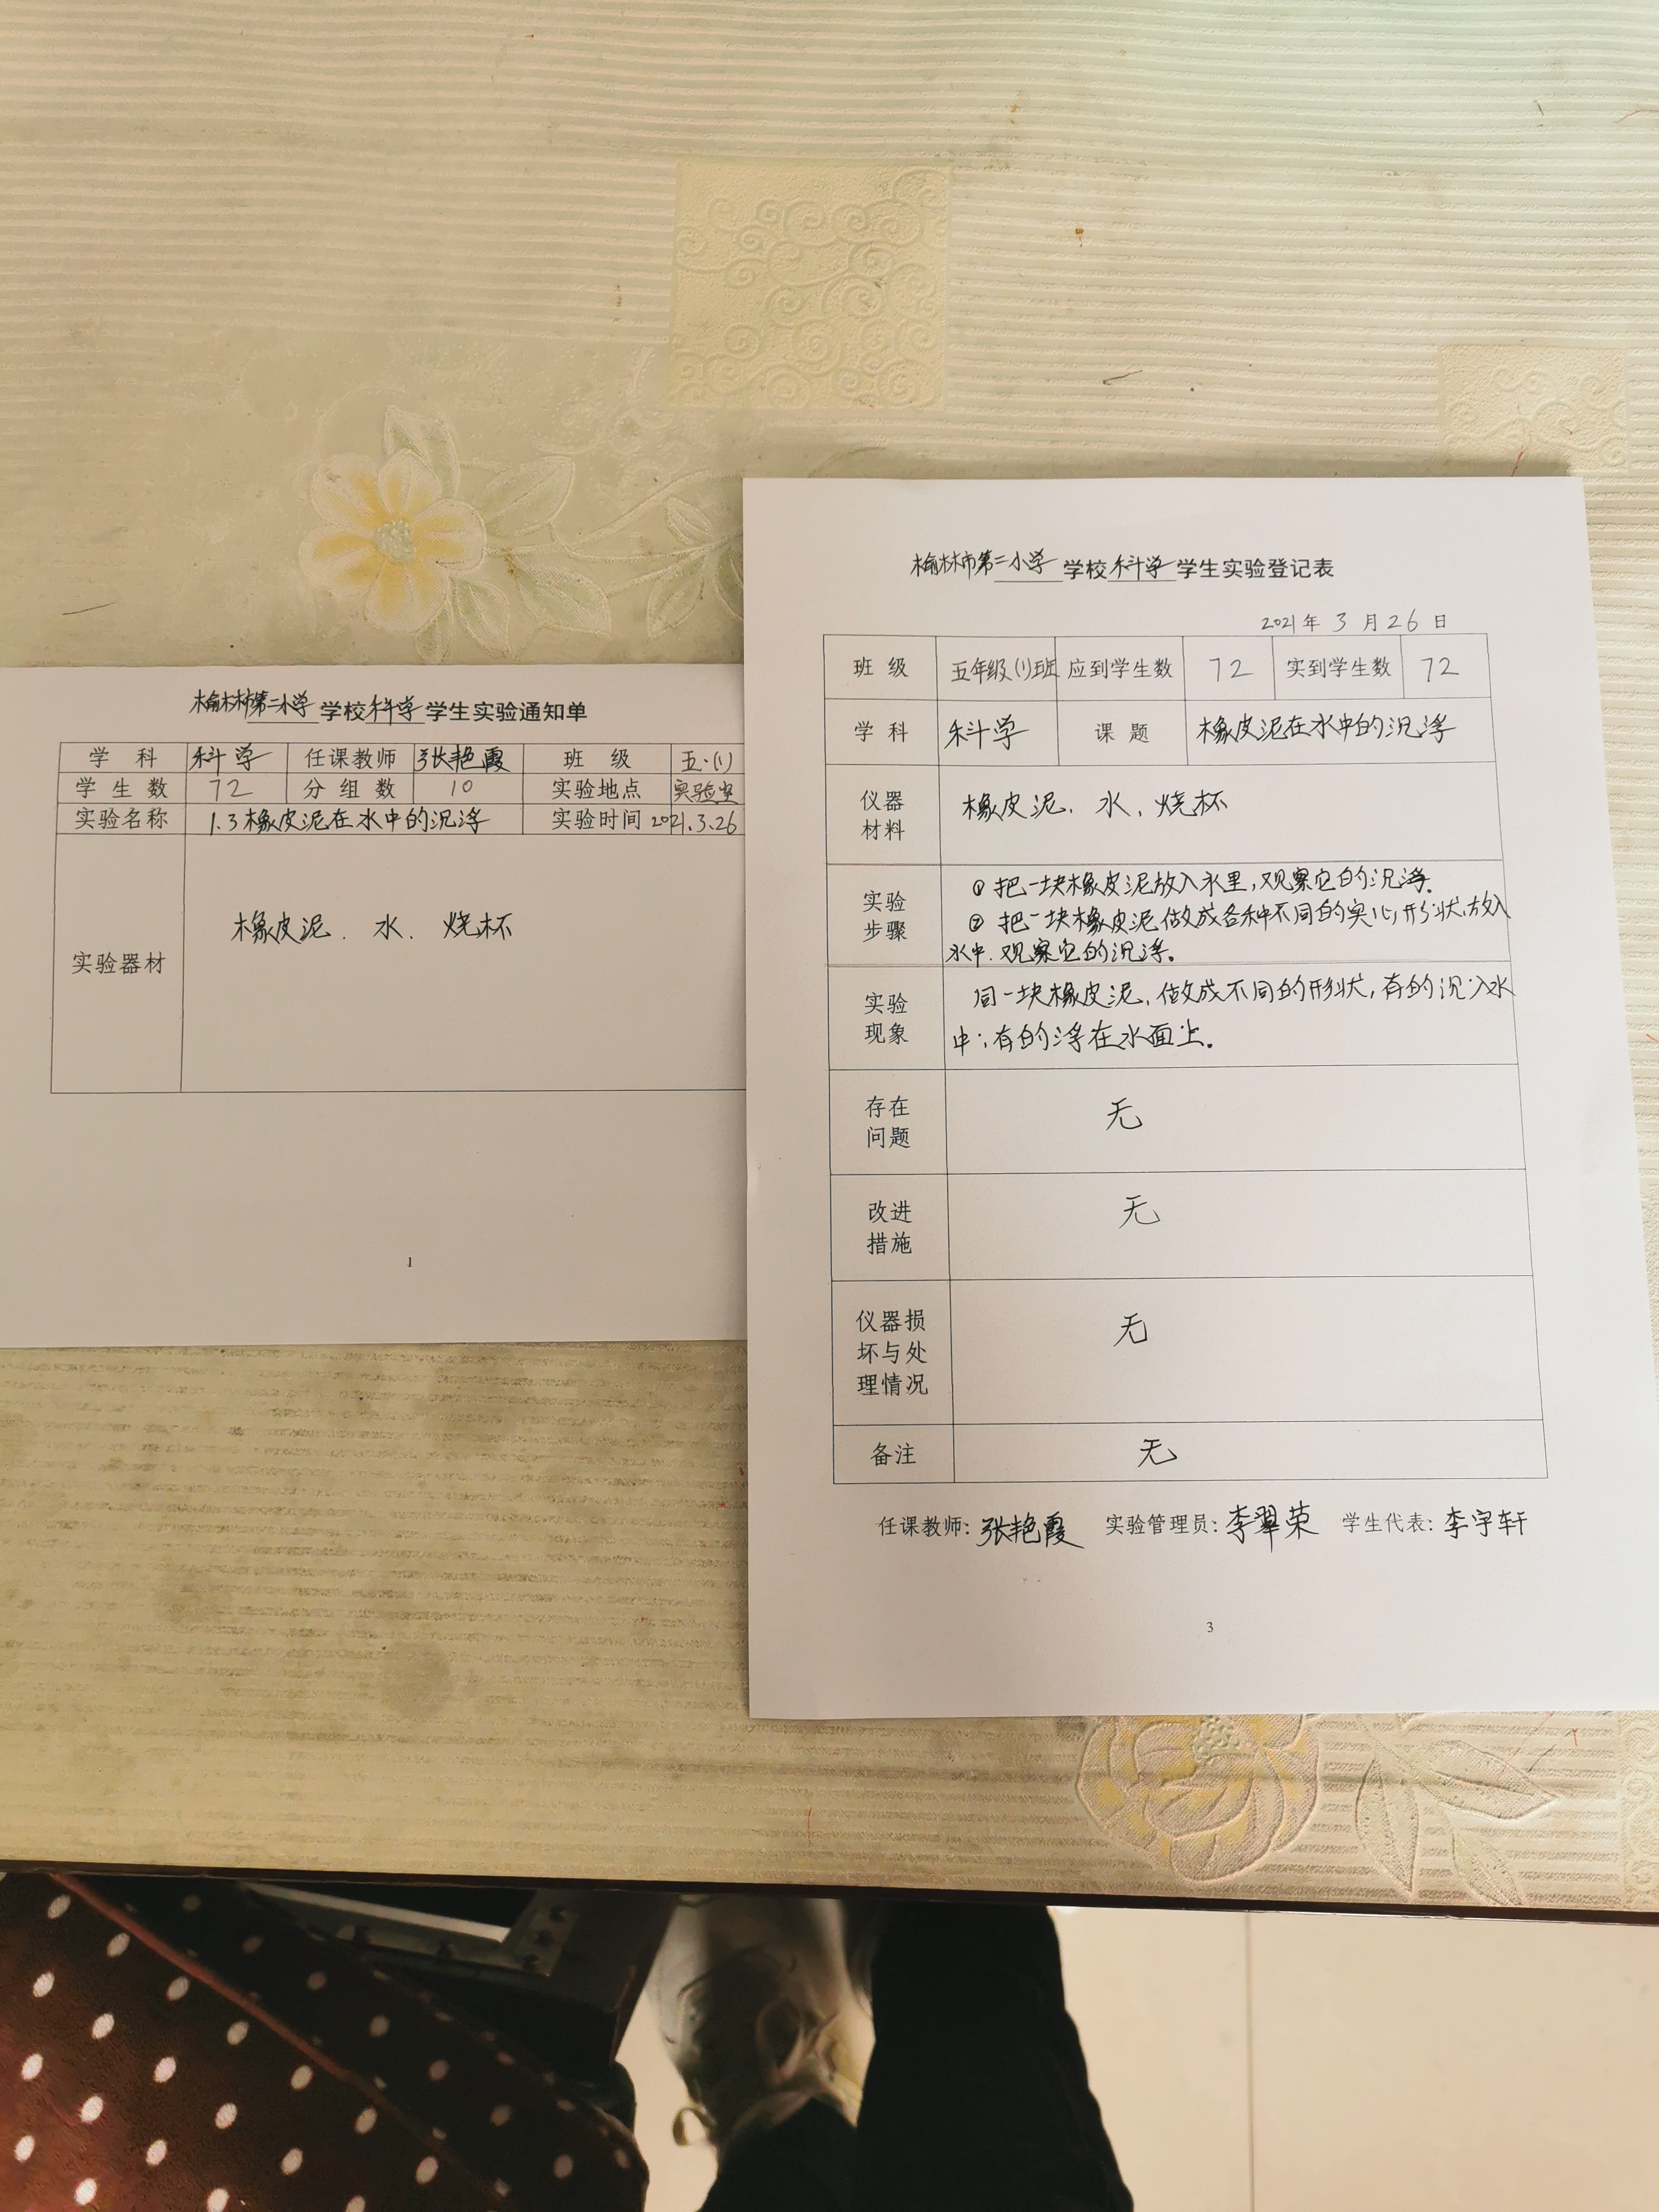 榆林市第二小学学校科学学生实验通知单
学 科 科学 任课教师 张艳霞 班 级 五.(1)
学 生 数 72 分 组 数 10 实验地点 实验室
实验名称 1.3橡皮泥在水中的沉浮 实验时间 2021.3.26
实验器材 橡皮泥. 水. 烧杯
1
榆林市第二小学学校科学学生实验登记表
2021年 3 月 26 日
班 级 五年级(1)班 应到学生数 72 实到学生数 72
学 科 科学 课 题 橡皮泥在水中的沉浮
仪器
材料
橡皮泥. 水. 烧杯
实验
步骤
① 把一块橡皮泥放入水里,观察它的沉浮.
② 把一块橡皮泥做成各种不同的实心形状,放入
水中.观察它的沉浮。
实验
现象
同一块橡皮泥,做成不同的形状,有的沉入水
中;有的浮在水面上。
存在
问题
无
改进
措施
无
仪器损
坏与处
理情况
无
备注 无
任课教师: 张艳霞 实验管理员: 李翠荣 学生代表: 李宇轩
3